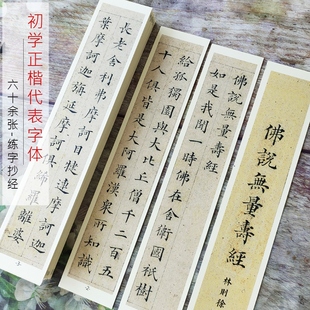 初学正楷代表字体
六十余张-练字抄经
佛說無量壽經
林則徐
佛說無量壽經
如是我聞一時佛在舍衛國祇樹
給孤獨園與大比丘僧千二百五
十人俱皆是大阿羅漢衆所知識
長老舍利弗摩訶目揵連摩訶迦
葉摩訶迦旃延摩訶俱絺羅離婆